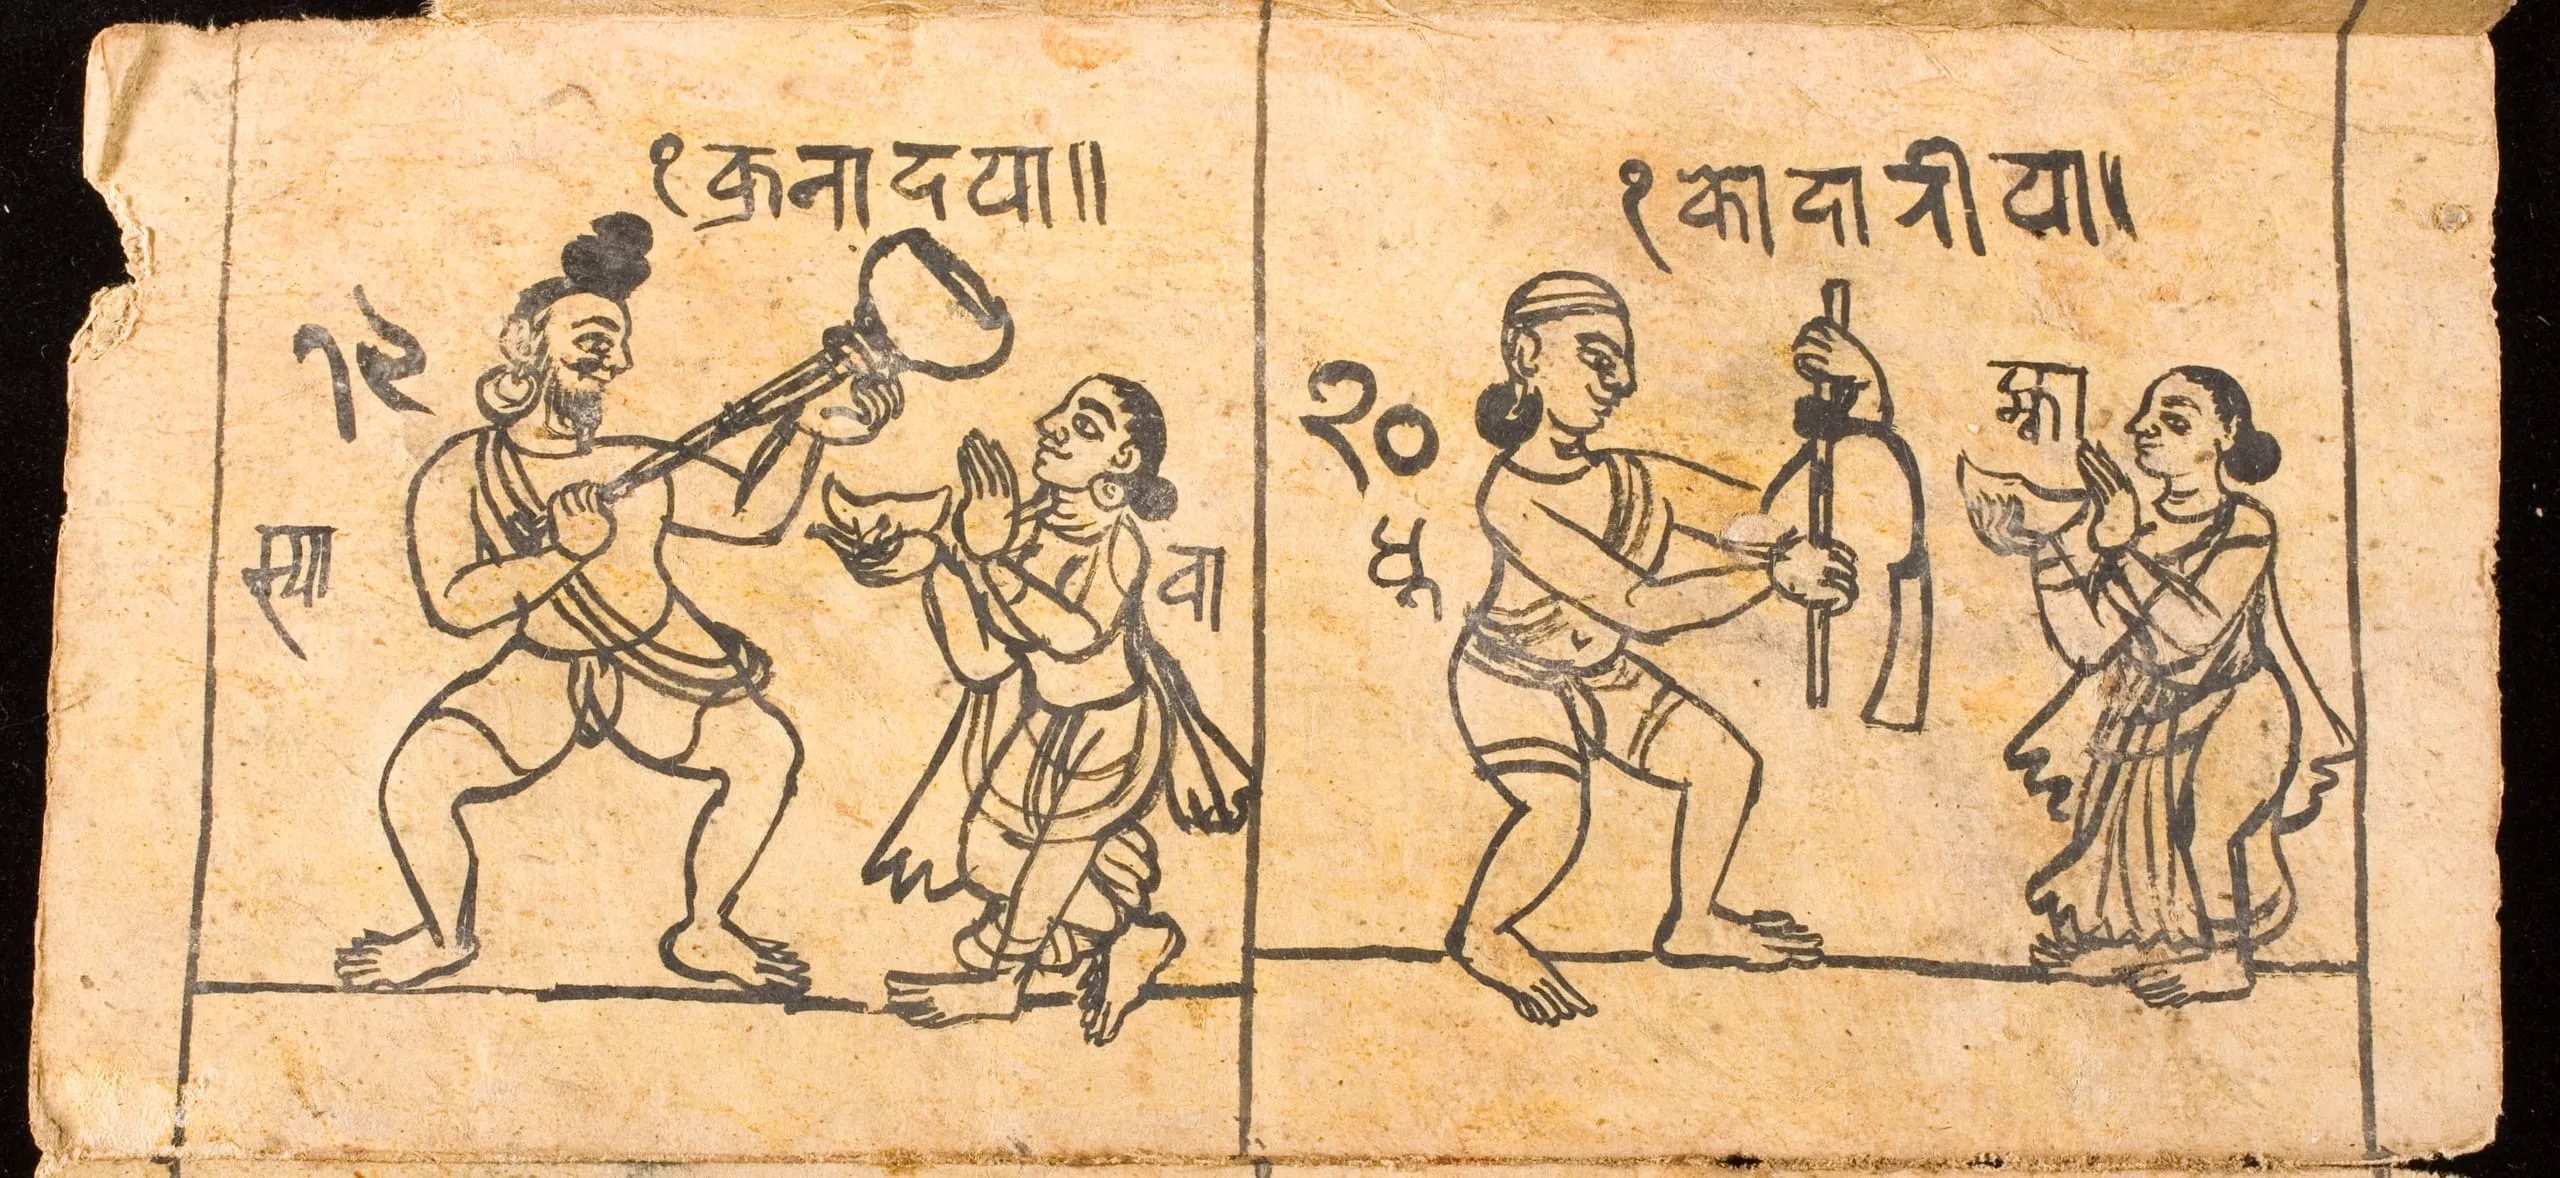 १क्रनादया॥
१९
स्या
वा
१कोदात्रीया॥
२०